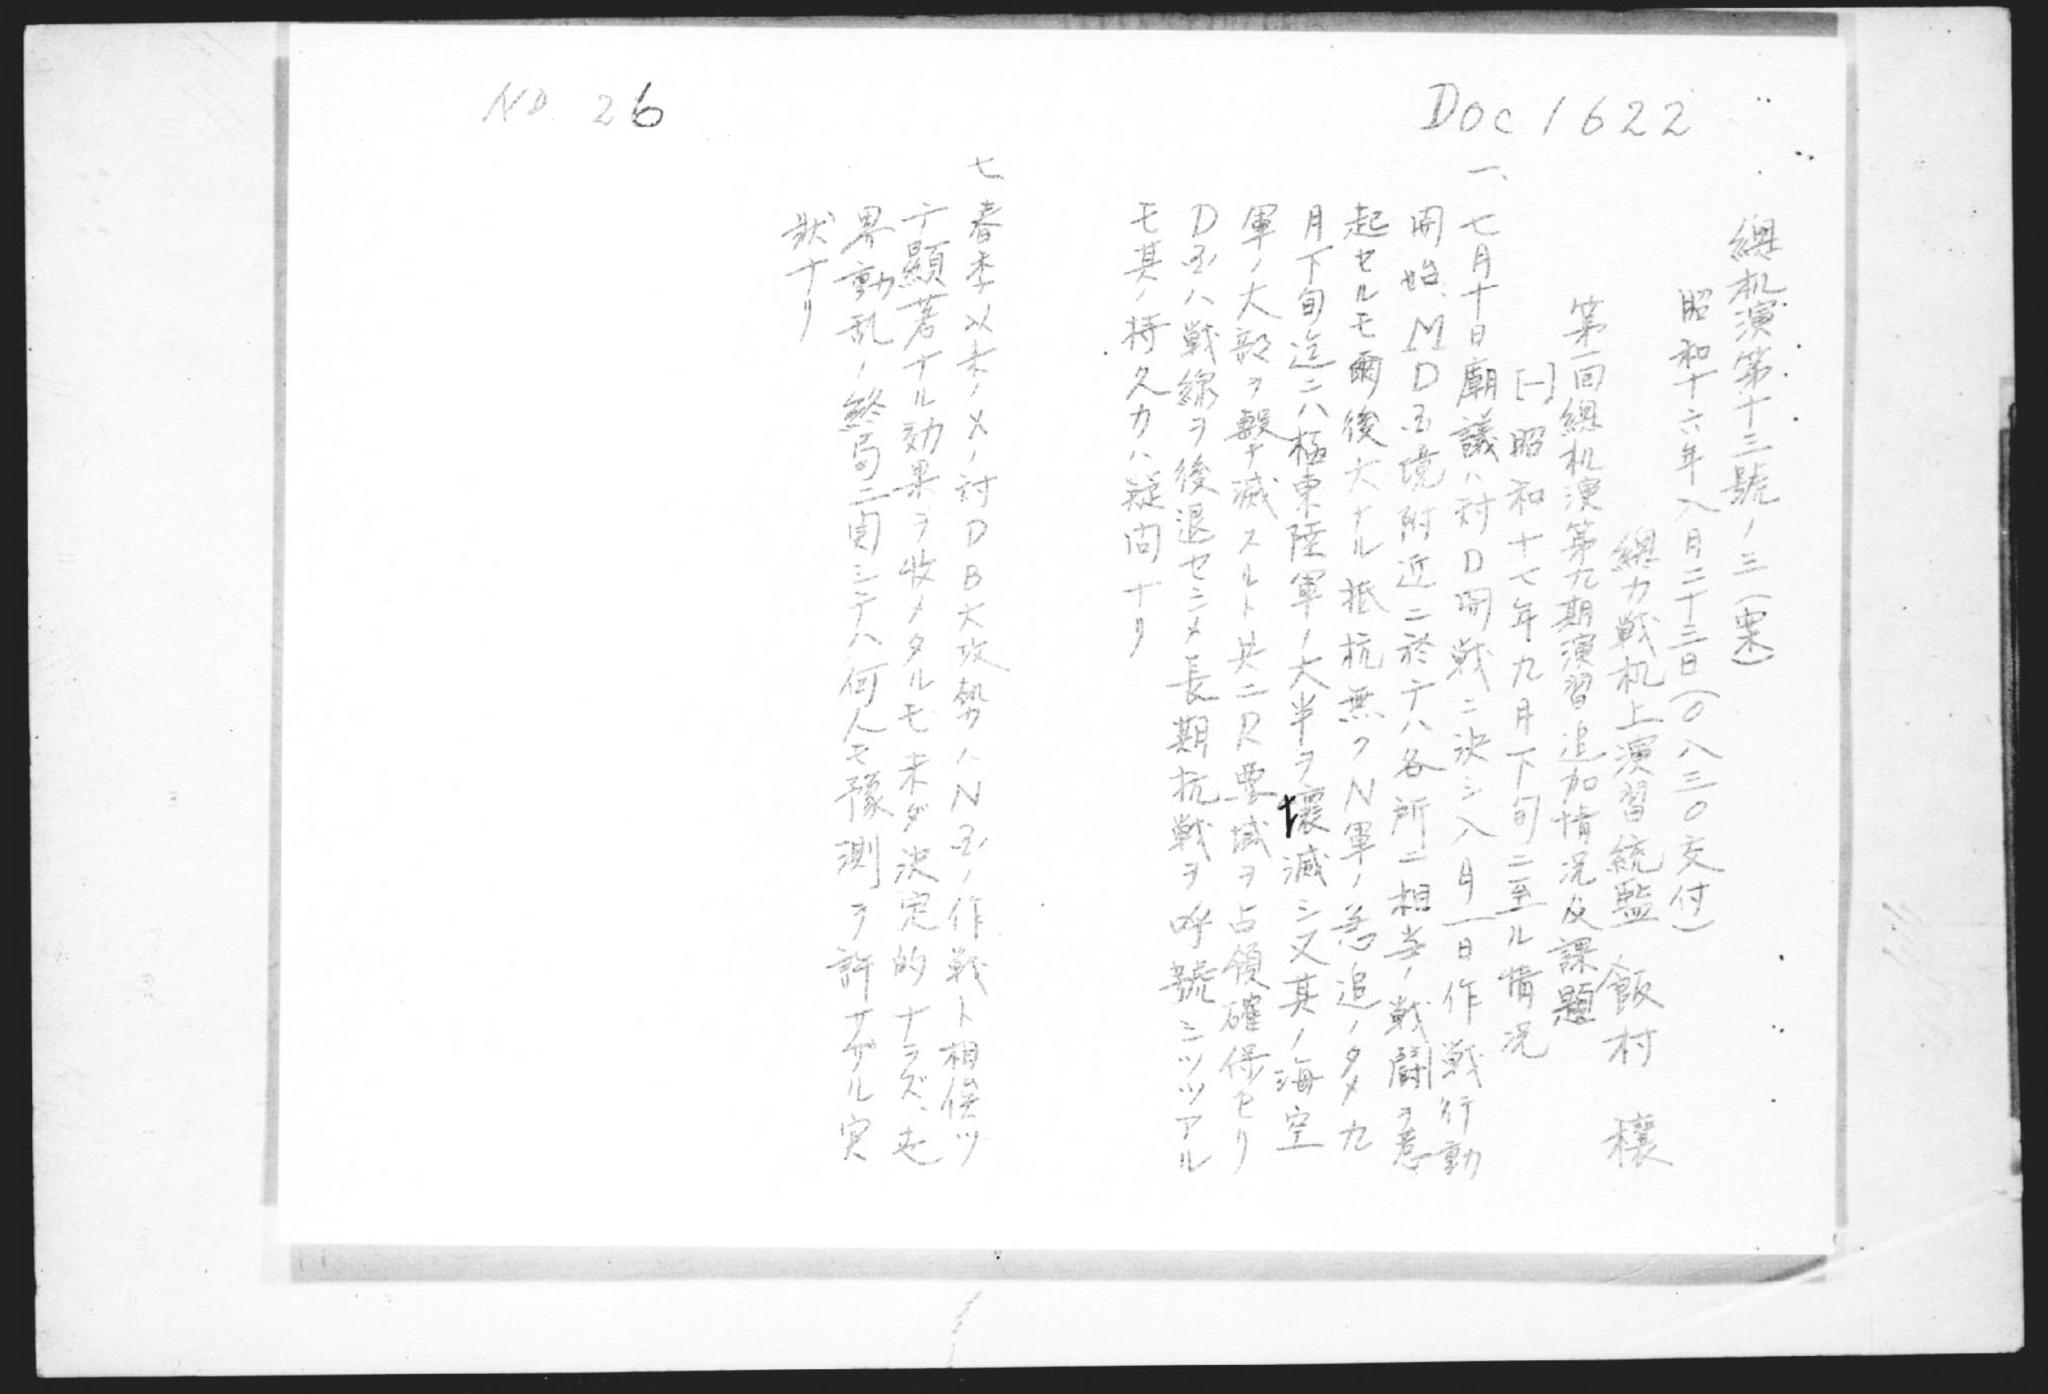 Doc 1622
No. 26
總机演第十三號ノ三（栗）
昭和十六年八月二十三日（〇八三〇交付）
總力戦机上演習統監 飯村 穰
第一回總机演第九期演習追加情況及課題
[一]昭和十七年九月下旬ニ至ル情況
一、七月十日廟議ハ対D開戦ニ決シ八月一日作戦行動
開始、MD国境附近ニ於テハ各所ニ相当ノ戦闘ヲ惹
起セルモ爾後大ナル抵抗無クN軍ノ急追ノタメ九
月下旬迄ニハ極東陸軍ノ大半ヲ壊滅シ又其ノ海空
軍ノ大部ヲ撃滅スルト共ニR要域ヲ占領確保セリ
D国ハ戦線ヲ後退セシメ長期抗戦ヲ呼號シツツアル
モ其ノ持久力ハ疑問ナリ
七、春季以来ノXノ対DB大攻勢ハN国ノ作戦ト相俟ツ
テ顯著ナル効果ヲ收メタルモ未ダ決定的ナラズ、世
界動乱ノ終局ニ関シテハ何人モ豫測ヲ許サザル実
狀ナリ